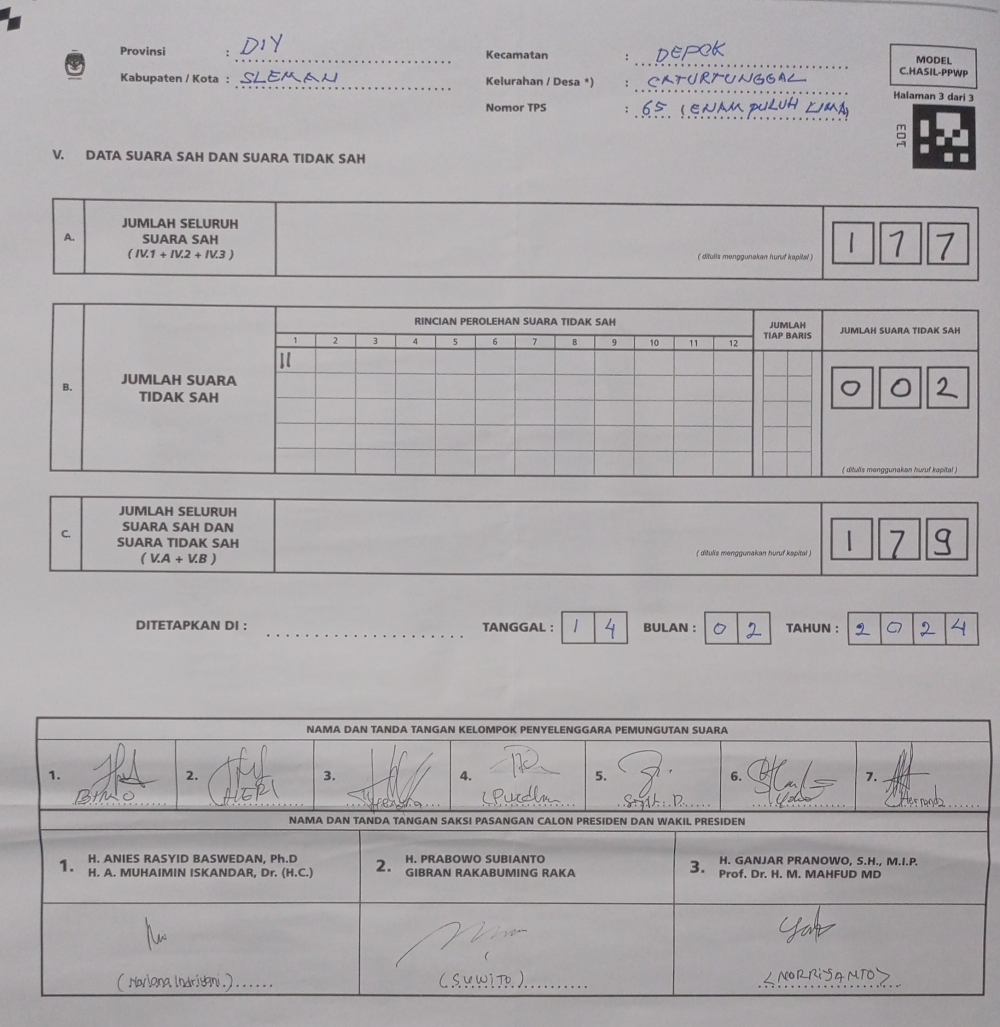 Provinsi : DIY
Kabupaten / Kota : SLEMAN
Kecamatan : DEPOK
Kelurahan / Desa *) : CATURTUNGGAL
Nomor TPS : 65 (ENAM PULUH LIMA)
MODEL
C.HASIL-PPWP
Halaman 3 dari 3
V. DATA SUARA SAH DAN SUARA TIDAK SAH
A. JUMLAH SELURUH
SUARA SAH
( IV.1 + IV.2 + IV.3 )
( ditulis menggunakan huruf kapital )
1 7 7
B. JUMLAH SUARA
TIDAK SAH
RINCIAN PEROLEHAN SUARA TIDAK SAH
1 2 3 4 5 6 7 8 9 10 11 12
JUMLAH
TIAP BARIS
JUMLAH SUARA TIDAK SAH
0 0 2
( ditulis menggunakan huruf kapital )
C. JUMLAH SELURUH
SUARA SAH DAN
SUARA TIDAK SAH
( V.A + V.B )
( ditulis menggunakan huruf kapital )
1 7 9
DITETAPKAN DI : TANGGAL : 1 4 BULAN : 0 2 TAHUN : 2 0 2 4
NAMA DAN TANDA TANGAN KELOMPOK PENYELENGGARA PEMUNGUTAN SUARA
1. 2. HERI 3. 4. 5. 6. 7.
NAMA DAN TANDA TANGAN SAKSI PASANGAN CALON PRESIDEN DAN WAKIL PRESIDEN
1. H. ANIES RASYID BASWEDAN, Ph.D
H. A. MUHAIMIN ISKANDAR, Dr. (H.C.)
2. H. PRABOWO SUBIANTO
GIBRAN RAKABUMING RAKA
3. H. GANJAR PRANOWO, S.H., M.I.P.
Prof. Dr. H. M. MAHFUD MD
(Mariana Indriyani.)
(SUWITO)